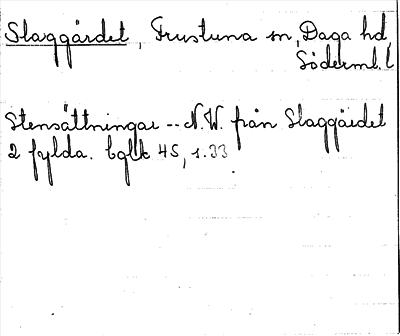 Slaggärdet, Frustuna sn, Daga hd,
Söderml. l
Stensättningar -- N.W. från Slaggärdet
2 fyllda. bglk 45, 1.33